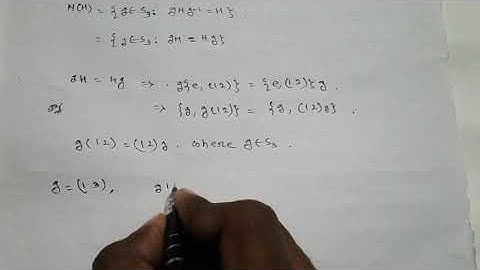 N(H) = { g∈S₃: gHg⁻¹ = H }.
= { g∈S₃: gH = Hg }
gH = Hg ⇒ g{e, (12)} = {e, (12)} g.
⇒ {g, g(12)} = {g, (12)g}.
g(12) = (12)g. where g∈S₃.
g = (13),